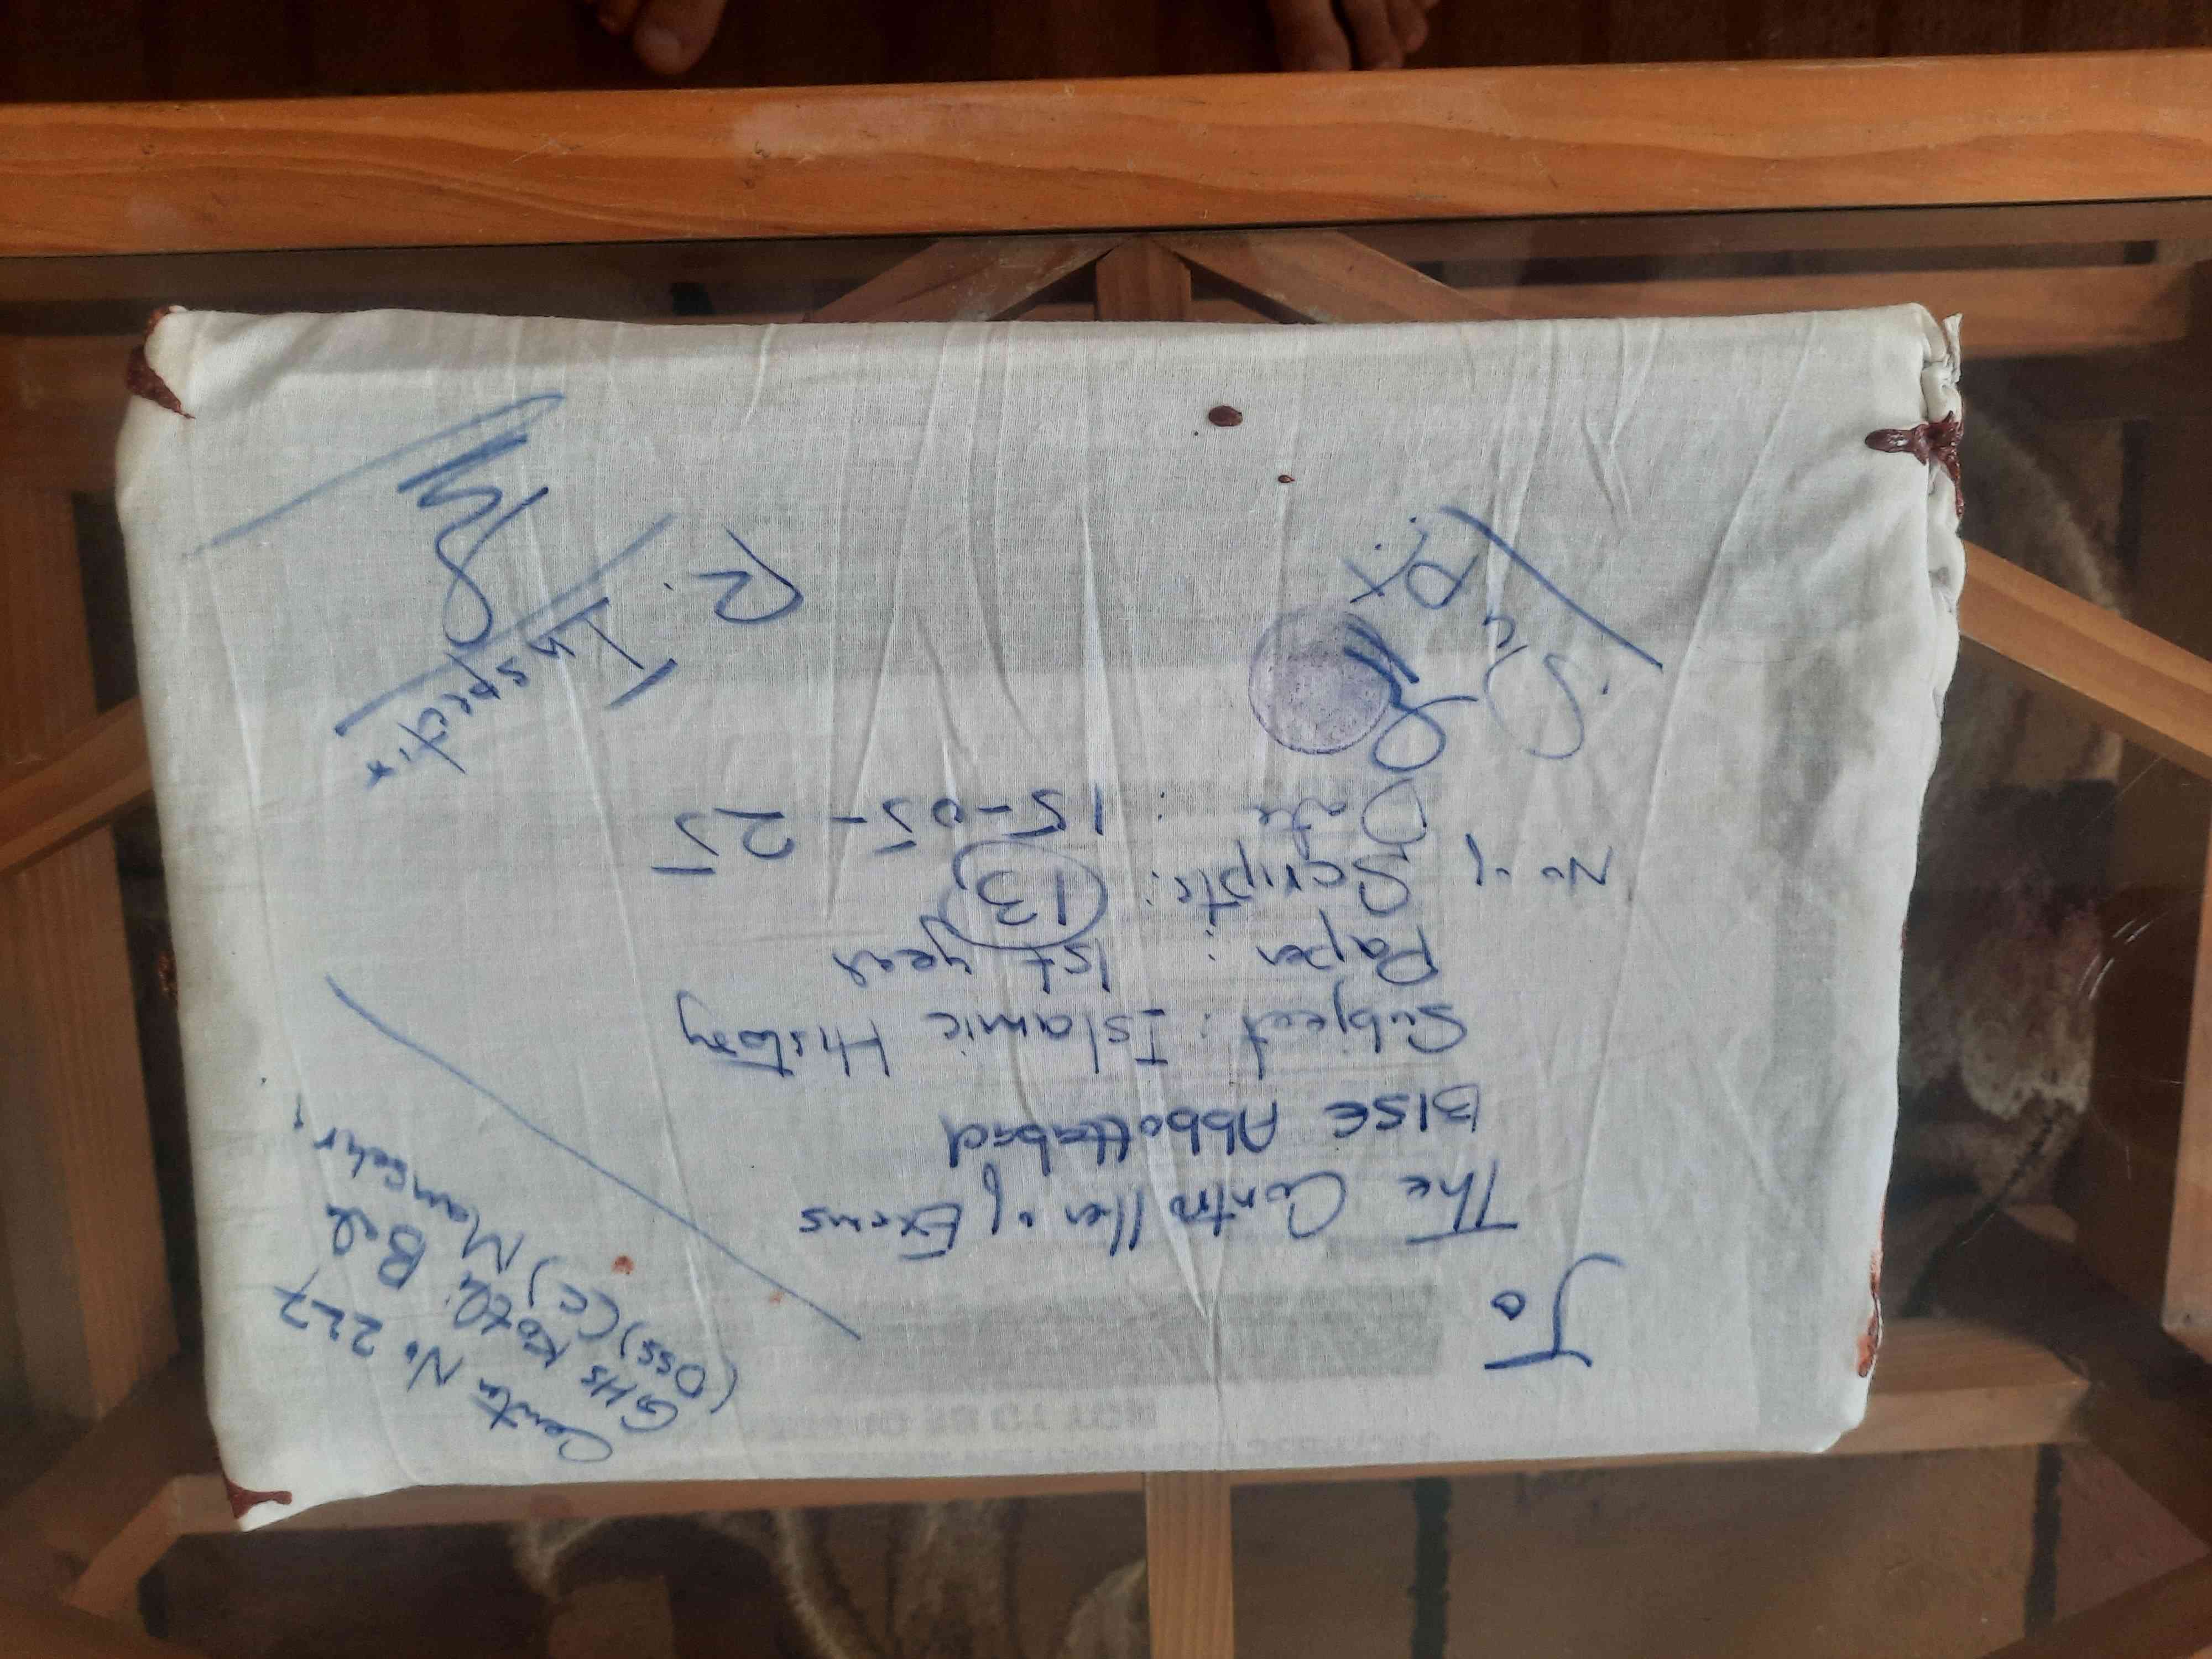 To
The Controller of Exams
BISE Abbottabad
Subject: Islamic History
Paper : 1st year
No of Scripts: 13
Date : 15-05-25
Supt.
R.
Inspector
Center No 227
GHS Kotli Bela
(Oss) (C) Mansehra
NOT TO BE